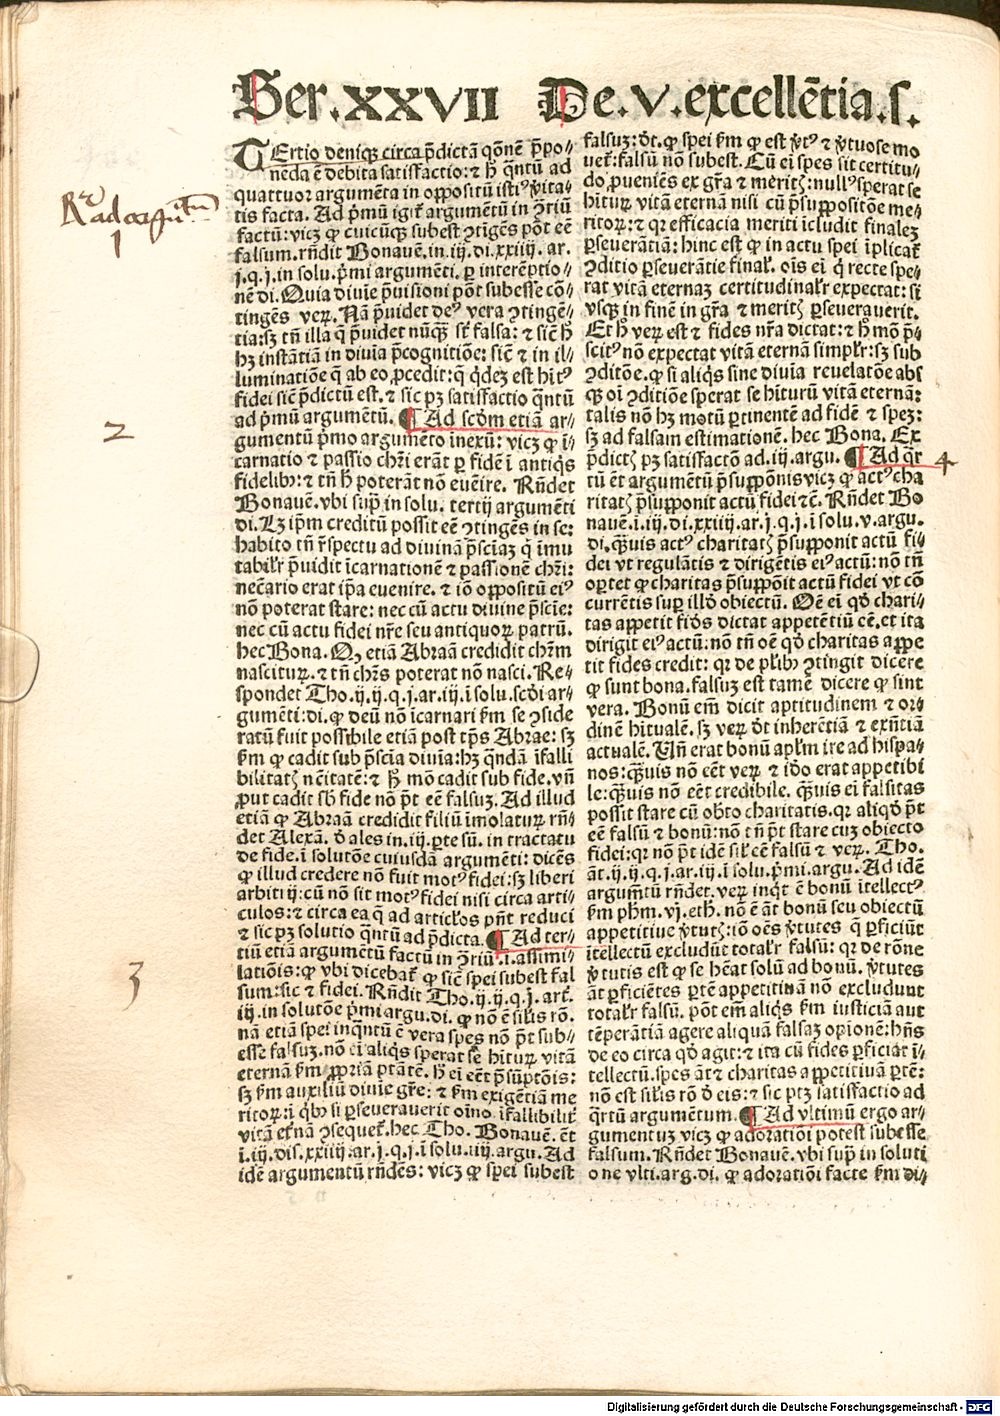 Ser.XXVII De.V.excellētia.s.
TErtio deniqʒ circa p̄dictā qōnē p̄po⸗
nēda ē debita satisfactio: ⁊ h̄ q̄ntū ad
quattuor argumēta in oppositū istiꝰ v̄ita⸗
tis facta. Ad p̄mū igit̄ argumētū in ꝯriū
factū: vicꝫ ꝙ cuicūqꝫ subest ꝯtigēs pōt eē
falsum. rn̄dit Bonauē. in.iij.di.xxiij.ar.
j.q.j.in solu.p̄mi argumēti. ꝑ interēptio⸗
nē di. Quia diuīe p̄uisioni pōt subesse cō⸗
tingēs veꝝ. Nā p̄uidet deꝰ vera ꝯtingē⸗
tia: sꝫ tn̄ illa q̄ p̄uidet nūqꝫ st̄ falsa: ⁊ sic̄ h̄
hꝫ instātiā in diuīa p̄cognitiōe: sic̄ ⁊ in il⸗
luminatiōe q̄ ab eo ꝓcedit: q̄ q̇dez est hītꝰ
fidei sic̄ p̄dictū est. ⁊ sic pꝫ satisfactio q̄ntū
ad p̄mū argumētū. ¶ Ad scd̄m etiā ar⸗
gumentū p̄mo argumēto inexū: vicꝫ ꝙ ī⸗
carnatio ⁊ passio chr̄i erāt ꝑ fidē ī antiq̇s
fidelibꝰ: ⁊ tn̄ h̄ poterāt nō euēire. Rn̄det
Bonauē. vbi supͣ in solu. tertij argumēti
di. Lꝫ ip̄m creditū possit eē ꝯtingēs in se:
habito tn̄ r̄spectu ad diuinā p̄sciaꝫ q̄ īmu
tabilr̄ p̄uidit īcarnationē ⁊ passionē chr̄i:
nec̄ario erat ip̄a euenire. ⁊ iō oppositū eiꝰ
nō poterat stare: nec cū actu diuine p̄scīe:
nec cū actu fidei nr̄e seu antiquoꝝ patrū.
hec Bona. Qꝫ etiā Abraā credidit chr̄m
nasciturꝫ. ⁊ tn̄ chr̄s poterat nō nasci. Re⸗
spondet Tho.ij.ij.q.j.ar.iij.ī solu.scd̄i ar⸗
gumēti: di. ꝙ deū nō īcarnari ẜm se ꝯside
ratū fuit possibile etiā post tp̄s Abrae: sꝫ
ẜm ꝙ cadit sub p̄scīa diuīa: hꝫ q̄ndā īfalli
bilitatꝫ nc̄itatē: ⁊ h̄ mō cadit sub fide. vn̄
ꝓut cadit sb̄ fide nō pōt eē falsuꝫ. Ad illud
etiā ꝙ Abraā credidit filiū īmolatuꝝ rn̄⸗
det Alexā. ḋ ales in.iij.ꝑte sū. in tractatu
de fide. ī solutōe cuiusdā argumēti: dicēs
ꝙ illud credere nō fuit motꝰ fidei: sꝫ liberi
arbitrij: cū nō sit motꝰ fidei nisi circa arti⸗
culos: ⁊ circa ea q̄ ad articl̄os pn̄t reduci
⁊ sic pꝫ solutio q̄ntū ad p̄dicta. ¶ Ad ter⸗
tiū etiā argumētū factū in ꝯriū.i.assimi⸗
lationis: ꝙ vbi dicebat̄ ꝙ sic̄ spei subest fal
sum: sic ⁊ fidei. Rn̄dit Tho.ij.ij.q.j.art̄.
iij.in solutōe p̄mi argu.di. ꝙ nō ē sil̄is rō.
nā etiā spei inq̄ntū ē vera spes nō pōt sub⸗
esse falsuꝫ. nō ei aliq̇s sperat se hituꝝ vitā
eternā ẜm ꝓpriā ptātē. h̄ ei eēt p̄sūptōis:
sꝫ ẜm auxiliū diuīe gr̄e: ⁊ ẜm exigētiā me
ritoꝝ: ī q̇bꝰ si ꝑseuerauerit oīno īfallibilit̄
vitā et̄nā ꝯsequet̄. hec Tho. Bonauē. ēt
ī.iij.dis.xxiij.ar.j.q.j.ī solu.iiij.argu. Ad
idē argumentū rn̄dēs: vicꝫ ꝙ spei subest
falsuꝫ: ḋt. ꝙ spei ẜm ꝙ est v̄tꝰ ⁊ v̄tuose mo
uet̄: falsū nō subest. Cū ei spes sit certitu⸗
do ꝓueniēs ex gr̄a ⁊ meritꝭ: nullꝰ sperat se
hituꝝ vitā eternā nisi cū p̄suppositōe me⸗
ritoꝝ: ⁊ qꝛ efficacia meriti īcludit finaleꝫ
ꝑseuerātiā: hinc est ꝙ in actu spei īplicat̄
ꝯditio ꝑseuerātie final̄. oīs ei q̇ recte spe⸗
rat vitā eternaꝫ certitudinalr̄ expectat: si
vsqꝫ in finē in gr̄a ⁊ meritꝭ ꝑseuerauerit.
Et h̄ veꝝ est ⁊ fides nr̄a dictat: ⁊ h̄ mō p̄⸗
scitꝰ nō expectat vitā eternā simplr̄: sꝫ sub
ꝯditōe. ꝙ si aliq̇s sine diuīa reuelatōe abs
qꝫ oī ꝯditiōe sperat se hiturū vitā eternā:
talis nō hꝫ motū ꝑtinentē ad fidē ⁊ speꝫ:
sꝫ ad falsam estimationē. hec Bona. Ex
p̄dictꝭ pꝫ satisfactō ad.iij.argu. ¶ Ad q̄r
tū ēt argumētū p̄supponis vicꝫ ꝙ actꝰ cha
ritatꝭ p̄supponit actū fidei ⁊c̄. Rn̄det Bo
nauē.ī.iij.di.xxiij.ar.j.q.j.ī solu.v.argu.
di. q̄uis actꝰ charitatꝭ p̄supponit actū fi⸗
dei vt regulātis ⁊ dirigētis eiꝰ actū: nō tn̄
oꝑtet ꝙ charitas p̄suppōit actū fidei vt cō
currētis suꝑ illḋ obiectū. Oē ei qḋ chari⸗
tas appetit fiḋs dictat appetētiū eē. et ita
dirigit eiꝰ actū: nō tn̄ oē qḋ charitas appe
tit fides credit: qꝛ de plr̄ibꝰ ꝯtingit dicere
ꝙ sunt bona. falsuꝫ est tamē dicere ꝙ sint
vera. Bonū em̄ dicit aptitudinem ⁊ or⸗
dinē hitualē. sꝫ veꝝ ḋt inherētiā ⁊ exn̄tiā
actualē. Vn̄ erat bonū apl̄m ire ad hispa⸗
nos: q̄uis nō eēt veꝝ ⁊ iḋo erat appetibi
le: q̄uis nō eēt credibile. q̄uis ei falsitas
possit stare cū obto charitatis. qꝛ aliqḋ pōt
eē falsū ⁊ bonū: nō tn̄ pōt stare cuꝫ obiecto
fidei: qꝛ nō pōt idē sil̄ eē falsū ⁊ veꝝ. Tho.
āt.ij.ij.q.j.ar.iij.ī solu.p̄mi.argu. Ad idē
argum̄tū rn̄det. veꝝ inq̇t ē bonū ītellectꝰ
ẜm ph̄m.vj.eth. nō ē āt bonū seu obiectū
appetitiue v̄tutꝭ: iō oēs v̄tutes q̄ ꝑficiūt
itellectū excludūt totalr̄ falsū: qꝛ de rōne
v̄tutis est ꝙ se hēat solū ad bonū. v̄tutes
āt ꝑficiētes ꝑtē appetitiuā nō excludunt
totalr̄ falsū. pōt em̄ aliq̇s ẜm iusticiā aut
tēꝑātiā agere aliquā falsaꝫ opionē: hn̄s
de eo circa qḋ agit: ⁊ ita cū fides ꝑficiat ī⸗
tellectū. spes āt ⁊ charitas appetitiuā ꝑtē:
nō est sil̄is rō ḋ eis: ⁊ sic ptꝫ satisfactio ad
q̄rtū argumētum. ¶ Ad vltimū ergo ar⸗
gumentuꝫ vicꝫ ꝙ adoratiōi potest subesse
falsum. Rn̄det Bonauē. vbi supͣ in soluti
one vlti.arg.di. ꝙ adoratiōi facte ẜm di⸗
1
2
3
4
Digitalisierung gefördert durch die Deutsche Forschungsgemeinschaft - DFG